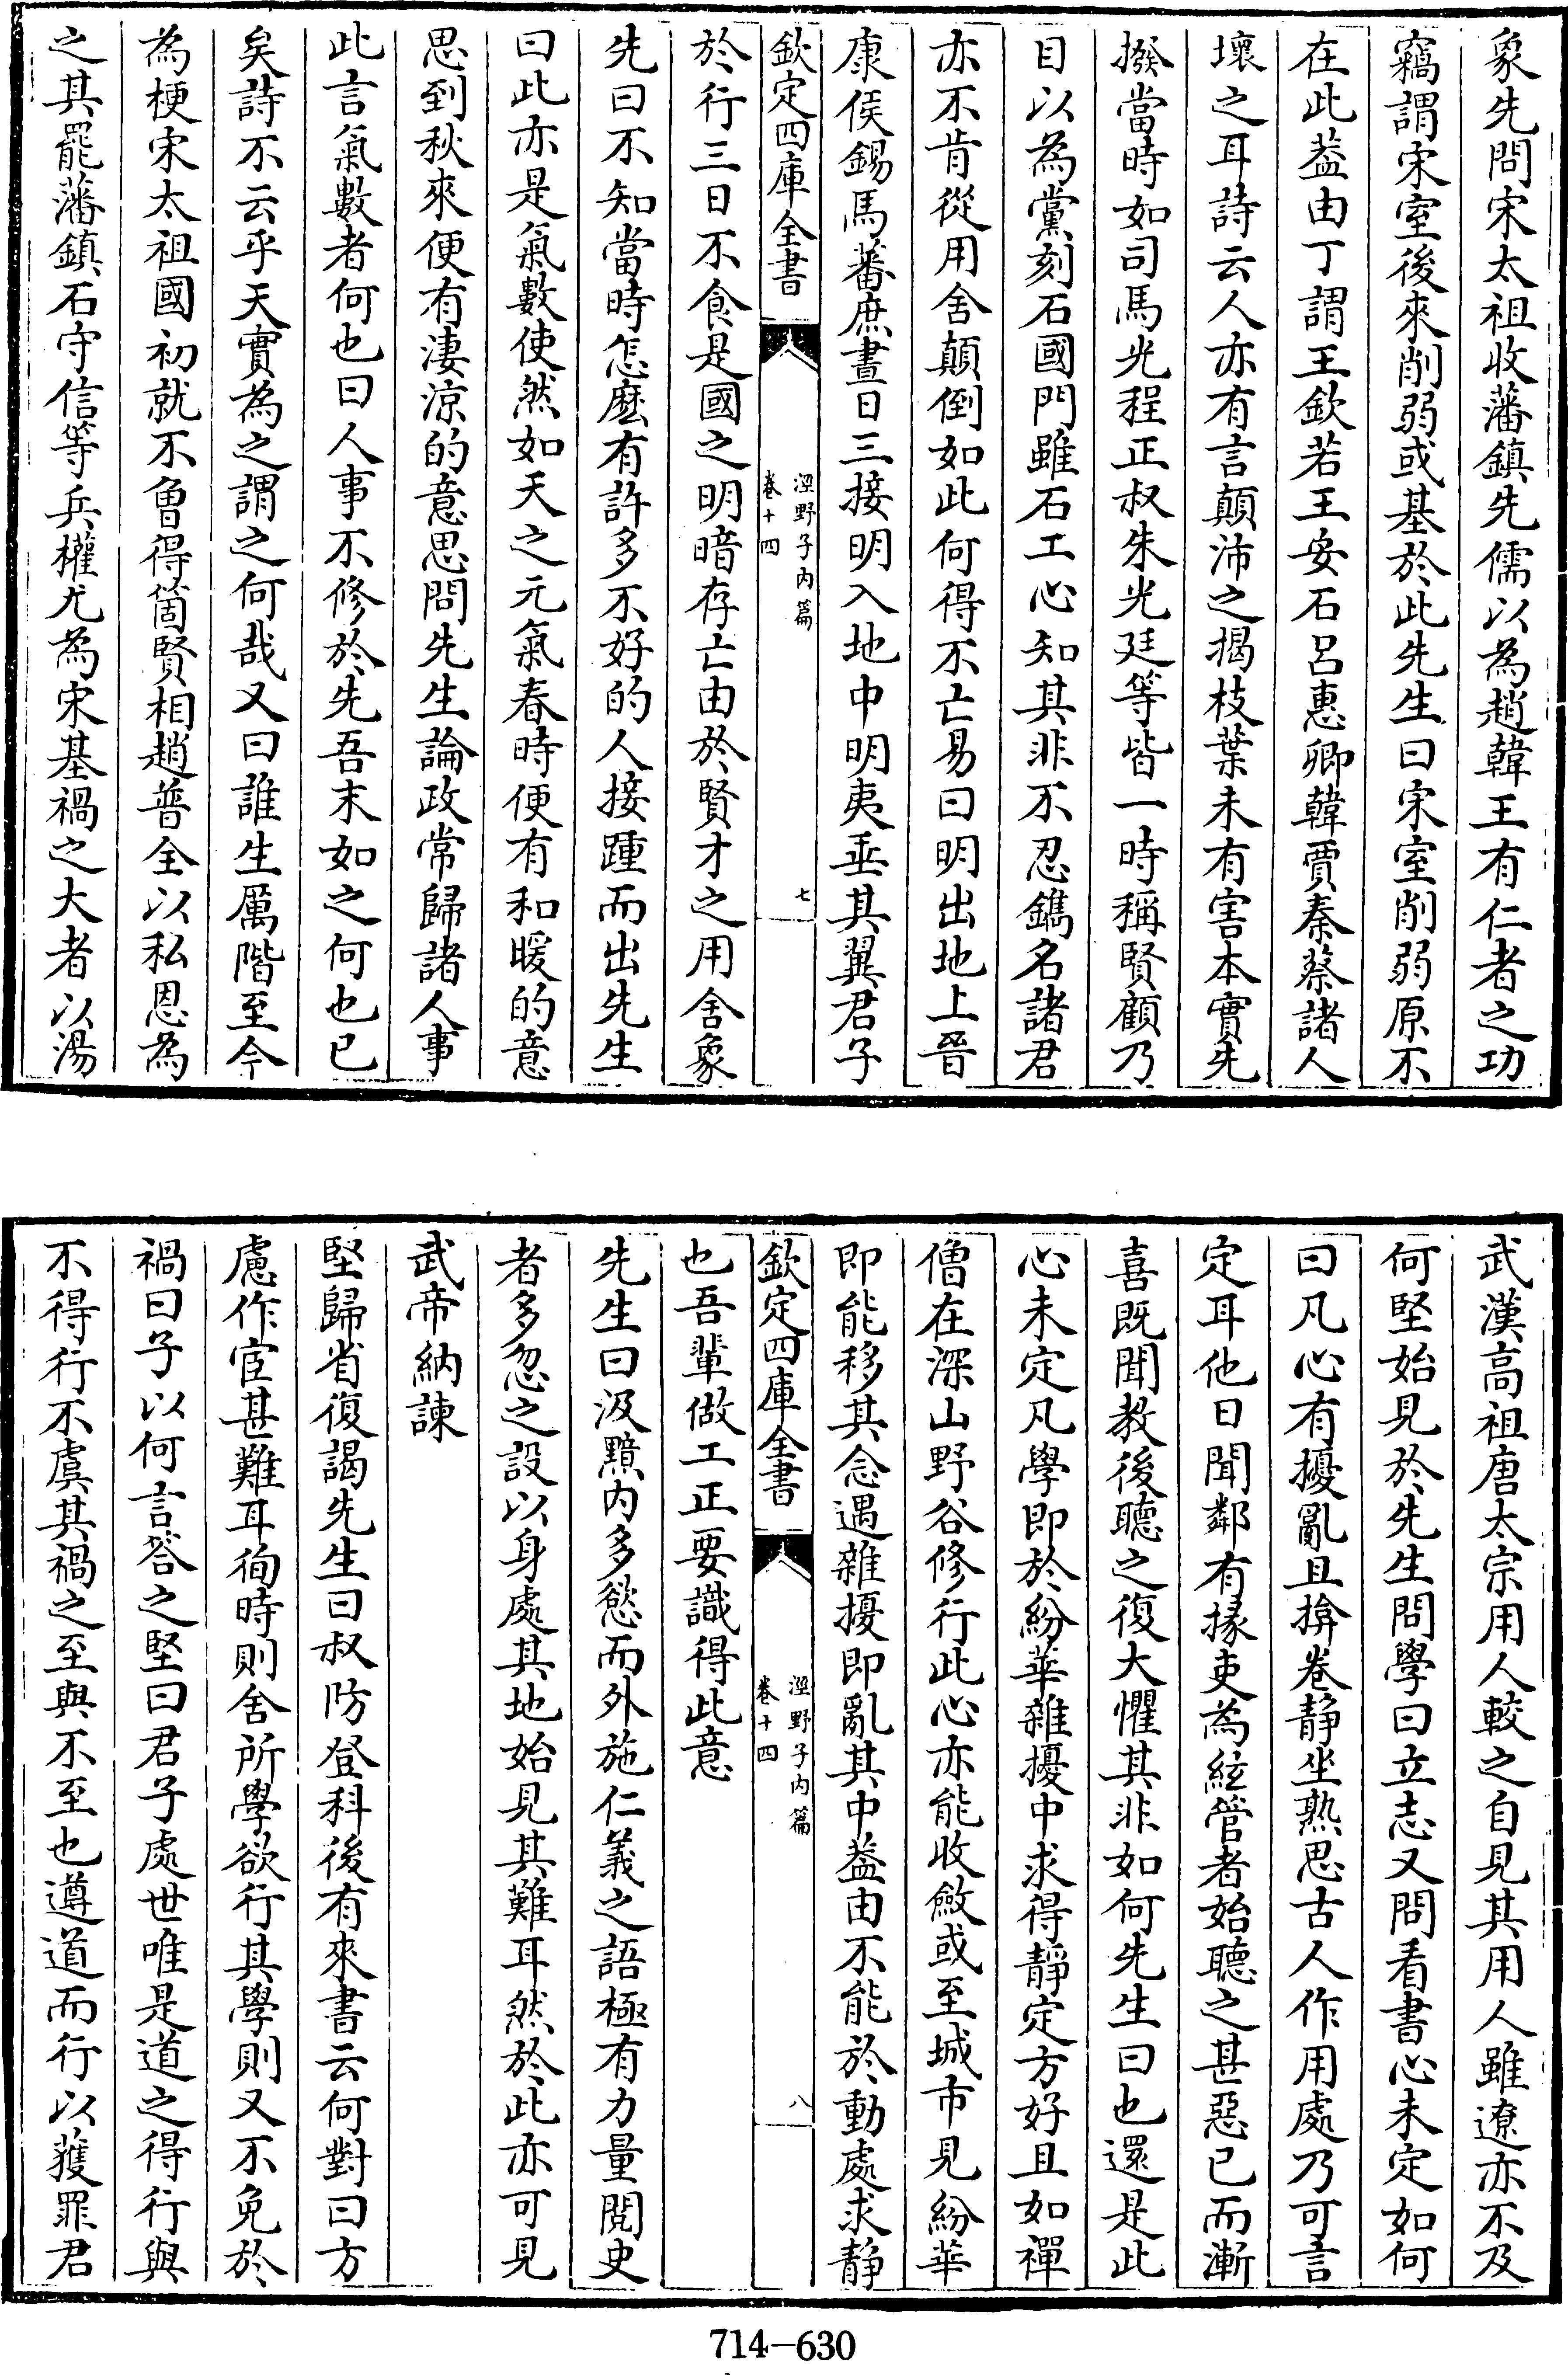 象先問宋太祖收藩鎮先儒以為趙韓王有仁者之功
竊謂宋室後來削弱或基於此先生曰宋室削弱原不
在此葢由丁謂王欽若王安石呂惠卿韓賈秦蔡諸人
壞之耳詩云人亦有言顛沛之揭枝葉未有害本實先
撥當時如司馬光程正叔朱光廷等皆一時稱賢顧乃
目以為黨刻石國門雖石工心知其非不忍鐫名諸君
亦不肯從用舍顛倒如此何得不亡易曰明出地上晉
康侯錫馬蕃庶晝日三接明入地中明夷垂其翼君子
欽定四庫全書
涇野子內篇
卷十四
七
於行三日不食是國之明暗存亡由於賢才之用舍象
先曰不知當時怎麽有許多不好的人接踵而出先生
曰此亦是氣數使然如天之元氣春時便有和暖的意
思到秋來便有淒涼的意思問先生論政常歸諸人事
此言氣數者何也曰人事不修於先吾末如之何也已
矣詩不云乎天實為之謂之何哉又曰誰生厲階至今
為梗宋太祖國初就不魯得箇賢相趙普全以私恩為
之其罷藩鎮石守信等兵權尤為宋基禍之大者以湯
武漢高祖唐太宗用人較之自見其用人雖遼亦不及
何堅始見於先生問學曰立志又問看書心未定如何
曰凡心有擾亂且揜卷靜坐熟思古人作用處乃可言
定耳他日聞鄰有掾吏為絃管者始聽之甚惡已而漸
喜既聞教後聽之復大懼其非如何先生曰也還是此
心未定凡學即於紛華雜擾中求得靜定方好且如禪
僧在深山野谷修行此心亦能收斂或至城市見紛華
即能移其念遇雜擾即亂其中葢由不能於動處求靜
欽定四庫全書
涇野子內篇
卷十四
八
也吾輩做工正要識得此意
先生曰汲黯內多慾而外施仁義之語極有力量閱史
者多忽之設以身處其地始見其難耳然於此亦可見
武帝納諫
堅歸省復謁先生曰叔防登科後有來書云何對曰方
慮作宦甚難耳徇時則舍所學欲行其學則又不免於
禍曰子以何言答之堅曰君子處世唯是道之得行與
不得行不虞其禍之至與不至也遵道而行以獲罪君
714-630